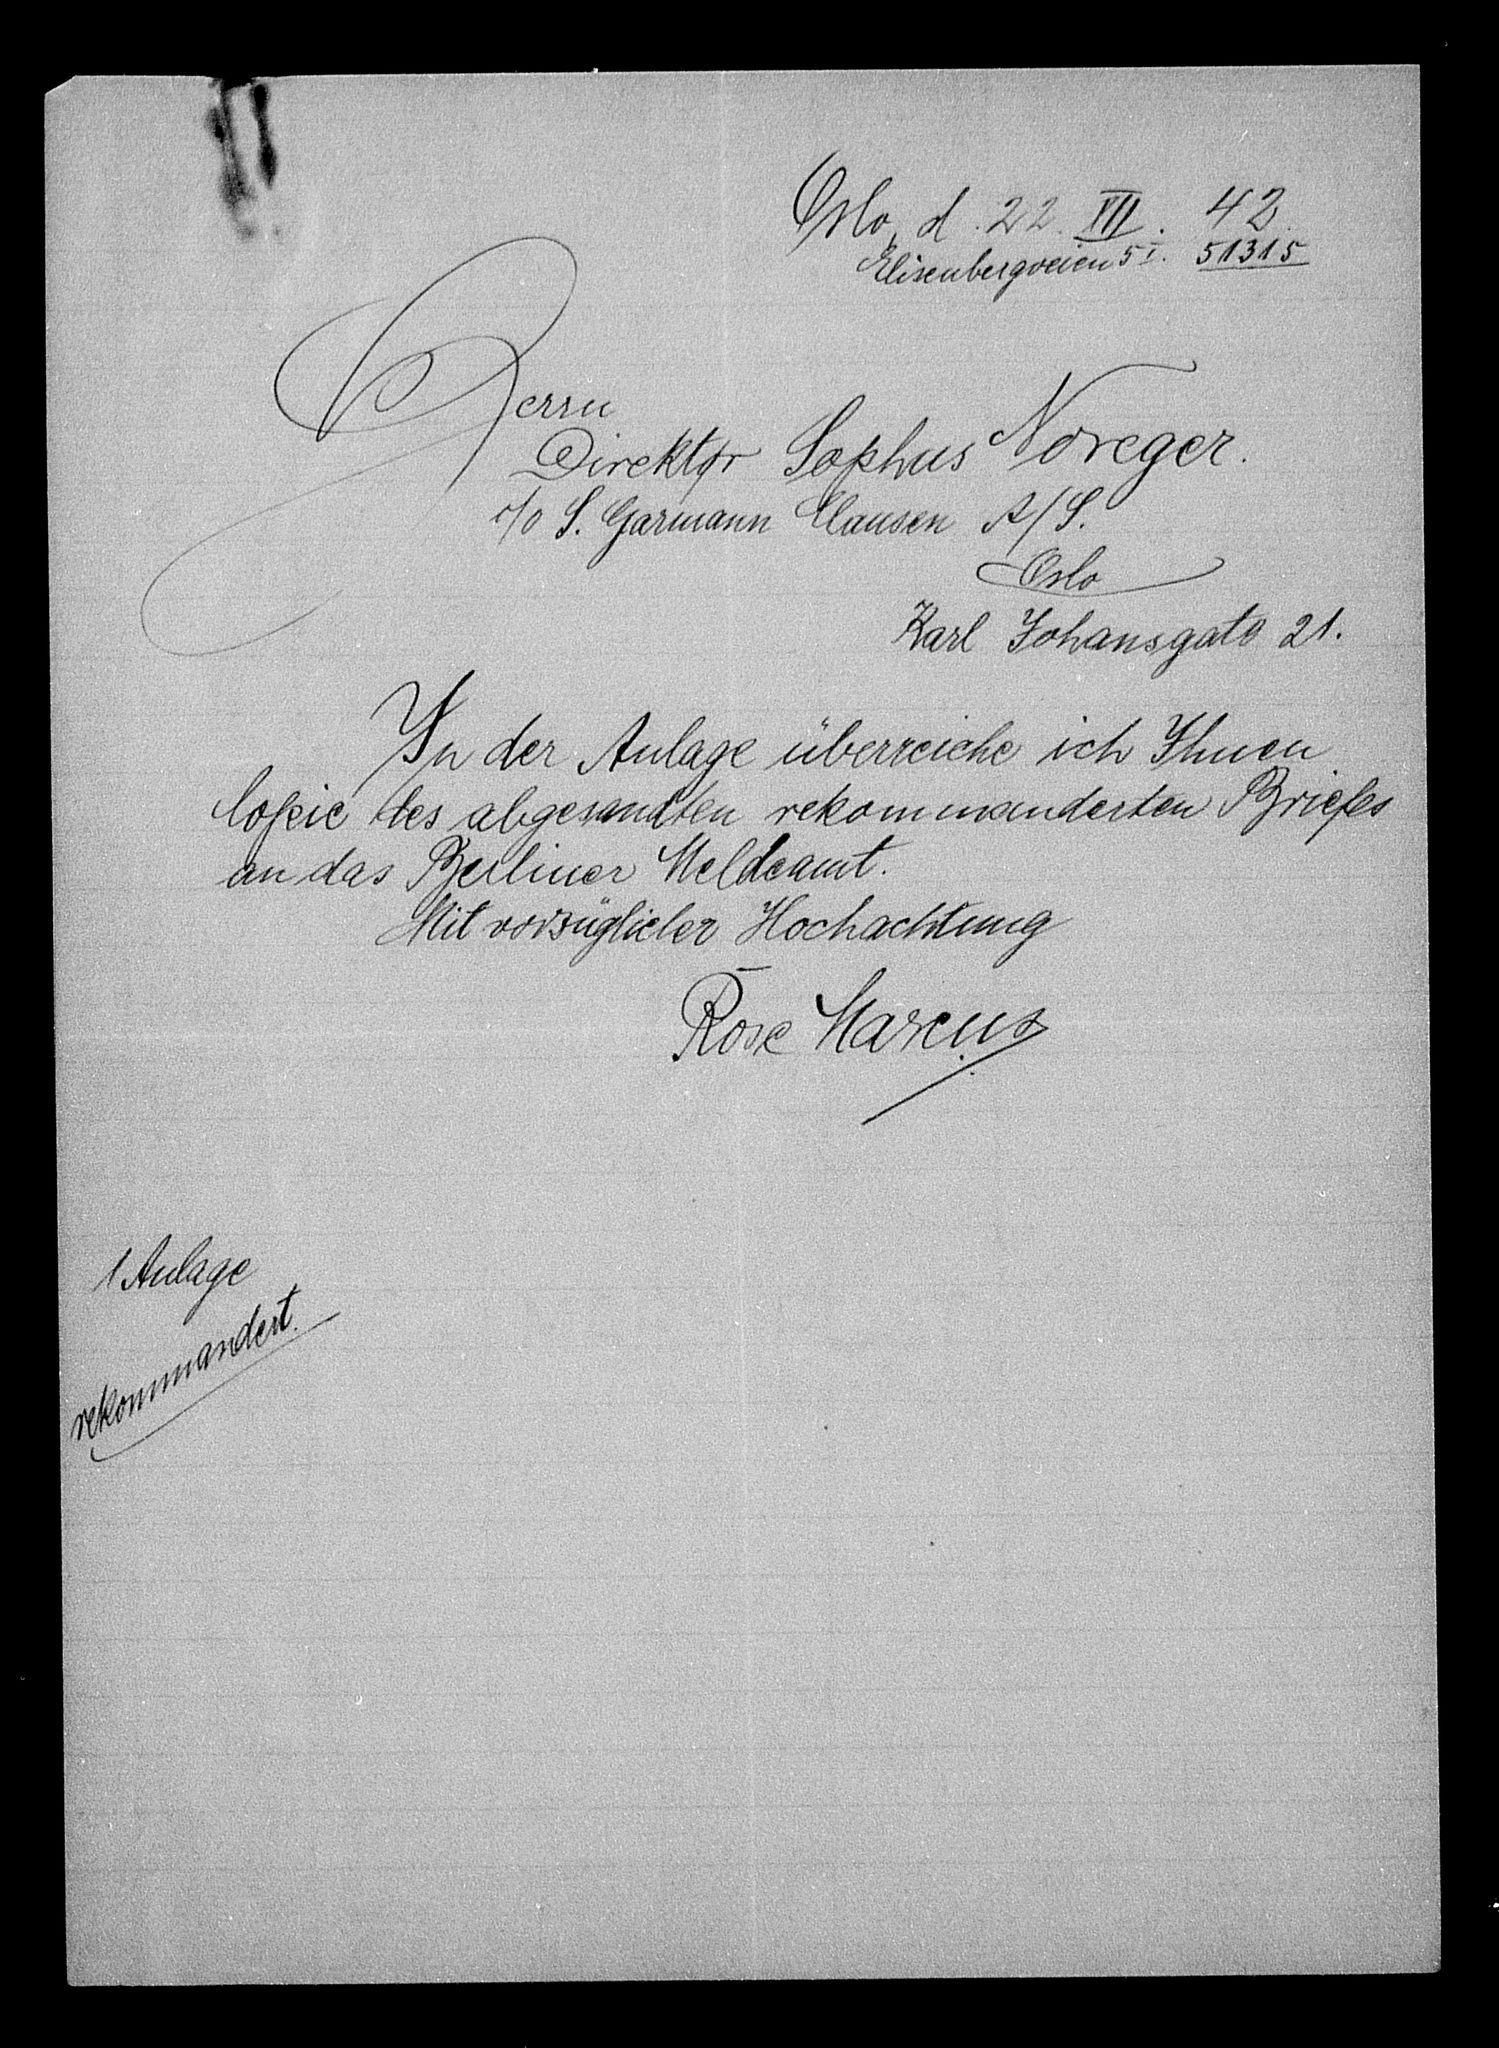 Oslo, d. 22. XII. 42.
Elisenbergveien 5 I. 51315
Herrn
Direktør Sophus Noreger.
c/o S. Garmann Clausen A/S.
Oslo
Karl Johansgate 21.
In der Anlage überreiche ich Ihnen
Copie des abgesandten rekommanderten Briefes
an das Berliner Meldeamt.
Mit vorzüglicher Hochachtung
Rose Marcus
1 Anlage
rekommandert.